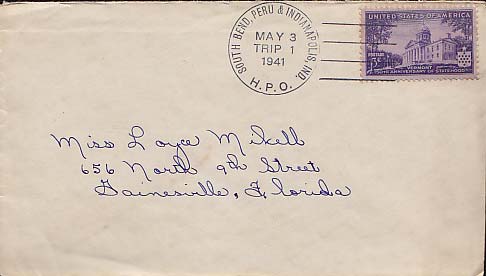 SOUTH BEND, PERU & INDIANAPOLIS, IND.
MAY 3
TRIP 1
1941
H.P.O.
UNITED STATES OF AMERICA
POSTAGE
3¢
VERMONT
150TH ANNIVERSARY OF STATEHOOD
Miss Loyce Mikell
656 North 9th Street
Gainesville, Florida